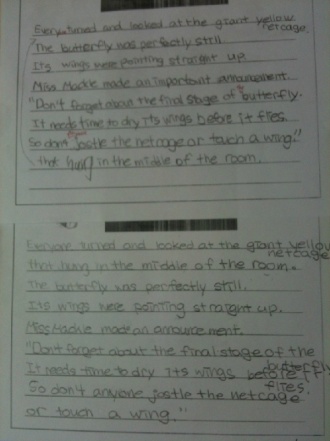 Every turned and looked at the giant yellow
netcage
The butterfly was perfectly still.
Its wings were pointing straight up
Miss Mackle made an important announcement.
"Don't forget about the final stage of butterfly.
It needs time to dry its wings before it flies.
So dont jostle the netcage or touch a wing."
that hung in the middle of the room.
Everyone turned and looked at the giant yellow
netcage
that hung in the middle of the room.
The butterfly was perfectly still.
Its wings were pointing straight up.
Miss Mackle made an announcement.
"Don't forget about the final stage of the
butterfly
It needs time to dry its wings before it
flies.
So don't anyone jostle the netcage
or touch a wing."